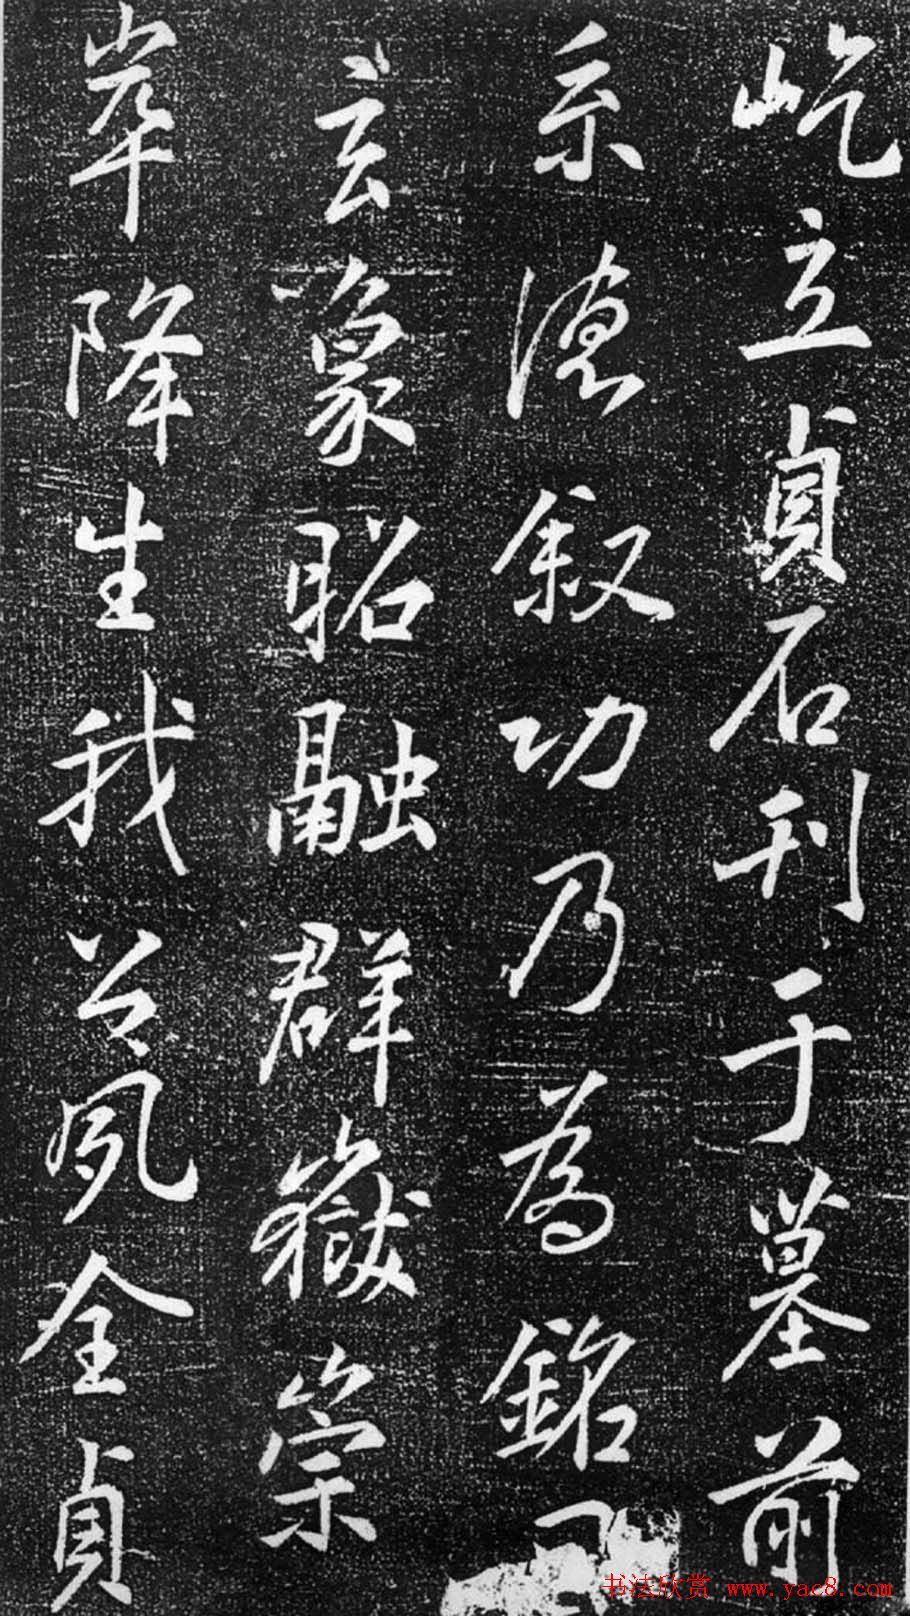 屹立貞石刊于墓前
系德叙功乃為銘
玄象昭融群嶽崇
崒降生我公夙全貞
书法欣赏 www.yac8.com